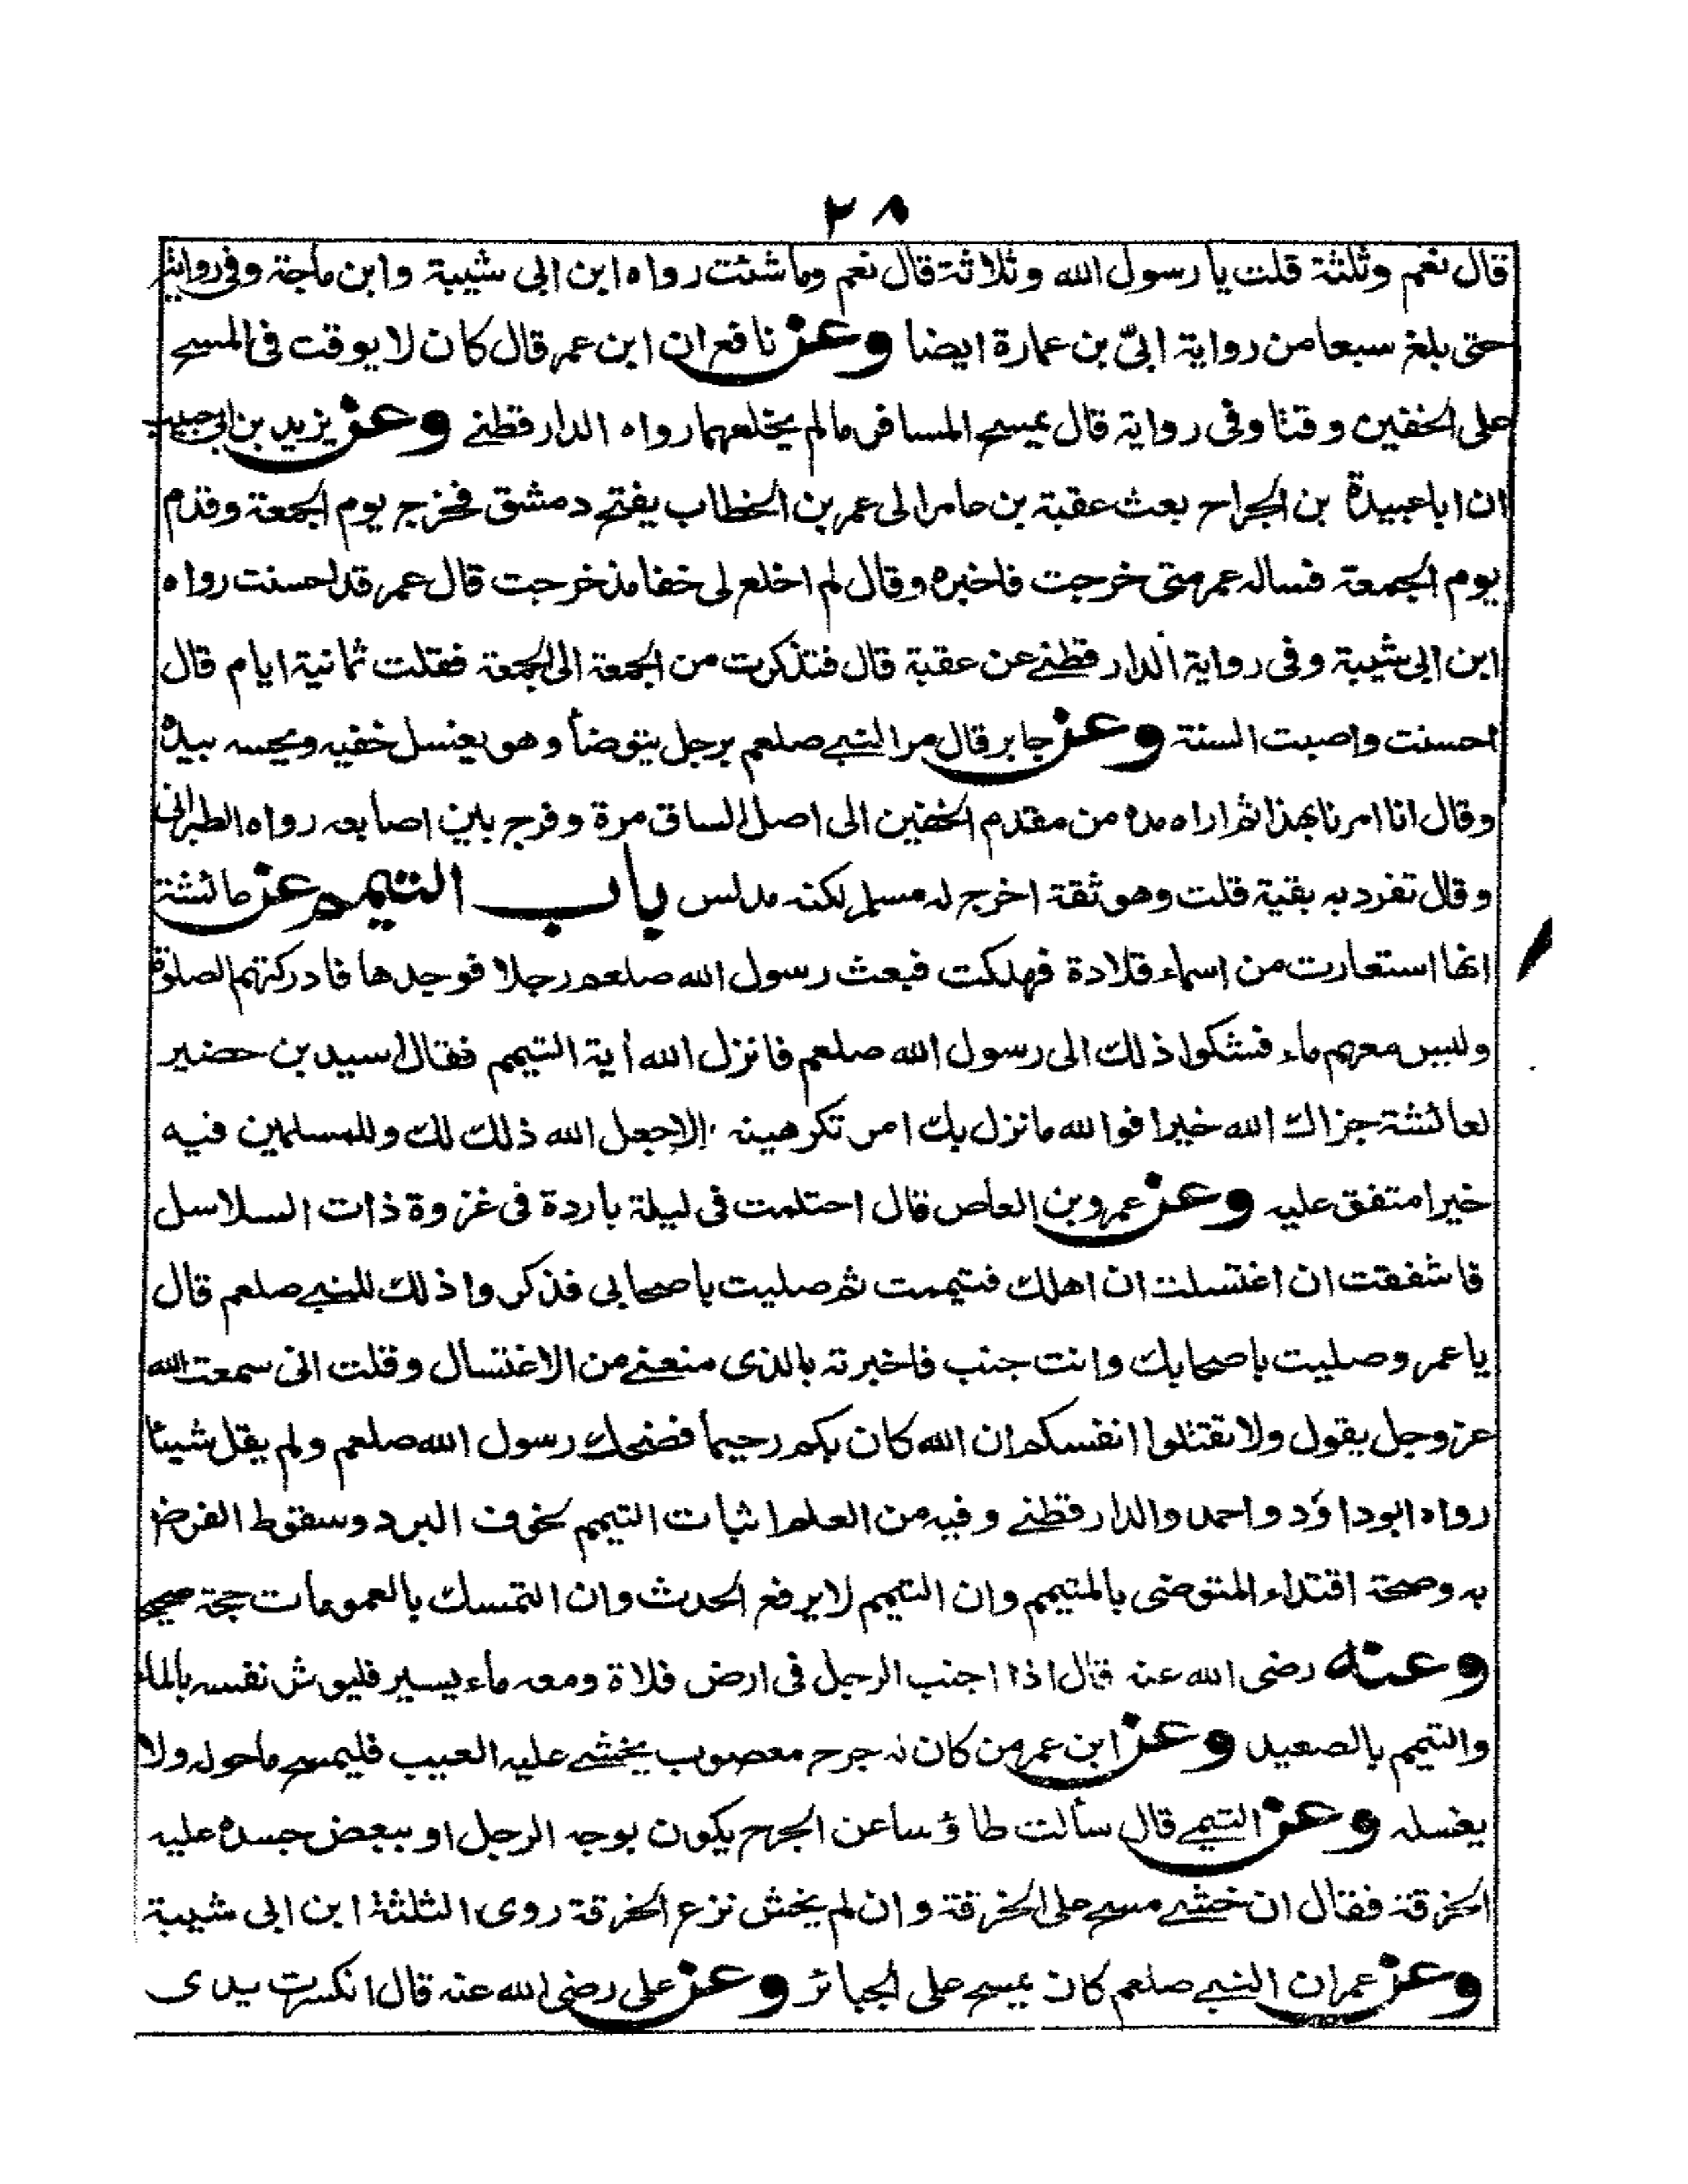 ٢٨
قال نعم وثلثة قلت يا رسول الله وثلاثة قال نعم وما شئت رواه ابن ابى شيبة وابن ماجة وفى رواية
حتى بلغ سبعا من رواية ابىّ بن عمارة ايضا وعن نافع ان ابن عمر قال كان لا يوقت فى المسح
على الخفين وقتا وفى رواية قال يمسح المسافر مالم يخلعهما رواه الدارقطنے وعن يزيد بن ابى حبيب
ان ابا عبيدة بن الجراح بعث عقبة بن عامر الى عمر بن الخطاب يفتح دمشق فخرج يوم الجمعة وقدم
يوم الجمعة فساله عمر متى خرجت فاخبره وقال لم اخلع لى خفا مذ خرجت قال عمر قد احسنت رواه
ابن ابى شيبة وفى رواية الدارقطنے عن عقبة قال فتذكرت من الجمعة الى الجمعة فقلت ثمانية ايام قال
احسنت واصبت السنة وعن جابر قال مر النبے صلعم برجل يتوضأ وهو يغسل خفيه بيده
وقال انا امرنا بهذا ثم اراه مده من مقدم الخفين الى اصل الساق مرة وفرج بين اصابعه رواه الطبرانى
وقال تفرد به بقية قلت وهو ثقة اخرج له مسلم لكنه مدلس باب التيمم عن عائشة
انها استعارت من اسماء قلادة فهلكت فبعث رسول الله صلعم رجلا فوجدها فادركتهم الصلوة
وليس معهم ماء فشكوا ذلك الى رسول الله صلعم فانزل الله أية التيمم فقال اسيد بن حضير
لعائشة جزاك الله خيرا فوالله ما نزل بك امر تكرهينه الا جعل الله ذلك لك وللمسلمين فيه
خيرا متفق عليه وعن عمرو بن العاص قال احتلمت فى ليلة باردة فى غزوة ذات السلاسل
فاشفقت ان اغتسلت ان اهلك فتيممت ثم صليت باصحابى فذكروا ذلك للنبے صلعم قال
يا عمرو صليت باصحابك وانت جنب فاخبرته بالذى منعنے من الاغتسال وقلت انى سمعت الله
عز وجل يقول ولا تقتلوا انفسكم ان الله كان بكم رحيما فضحك رسول الله صلعم ولم يقل شيئا
رواه ابو داؤد واحمد والدارقطنے وفيه من العلم اثبات التيمم لخوف البرد وسقوط الفرض
به وصحة اقتداء المتوضى بالمتيمم وان التيمم لا يرفع الحدث وان التمسك بالعمومات حجة صحيحة
وعنه رضى الله عنه قال اذا اجنب الرجل فى ارض فلاة ومعه ماء يسير فليوش نفسه بالماء
والتيمم بالصعيد وعن ابن عمر من كان له جرح معصوب يخشے عليه العيب فليمسح ماحوله ولا
يغسله وعن التيمے قال سألت طاؤسا عن الجرح يكون بوجه الرجل او ببعض جسده عليه
الخرقة فقال ان خشے مسح على الخرقة وان لم يخش نزع الخرقة روى الثلثة ابن ابى شيبة
وعن عمر ان النبے صلعم كان يمسح على الجبائر وعن على رضى الله عنه قال انكسرت يدى